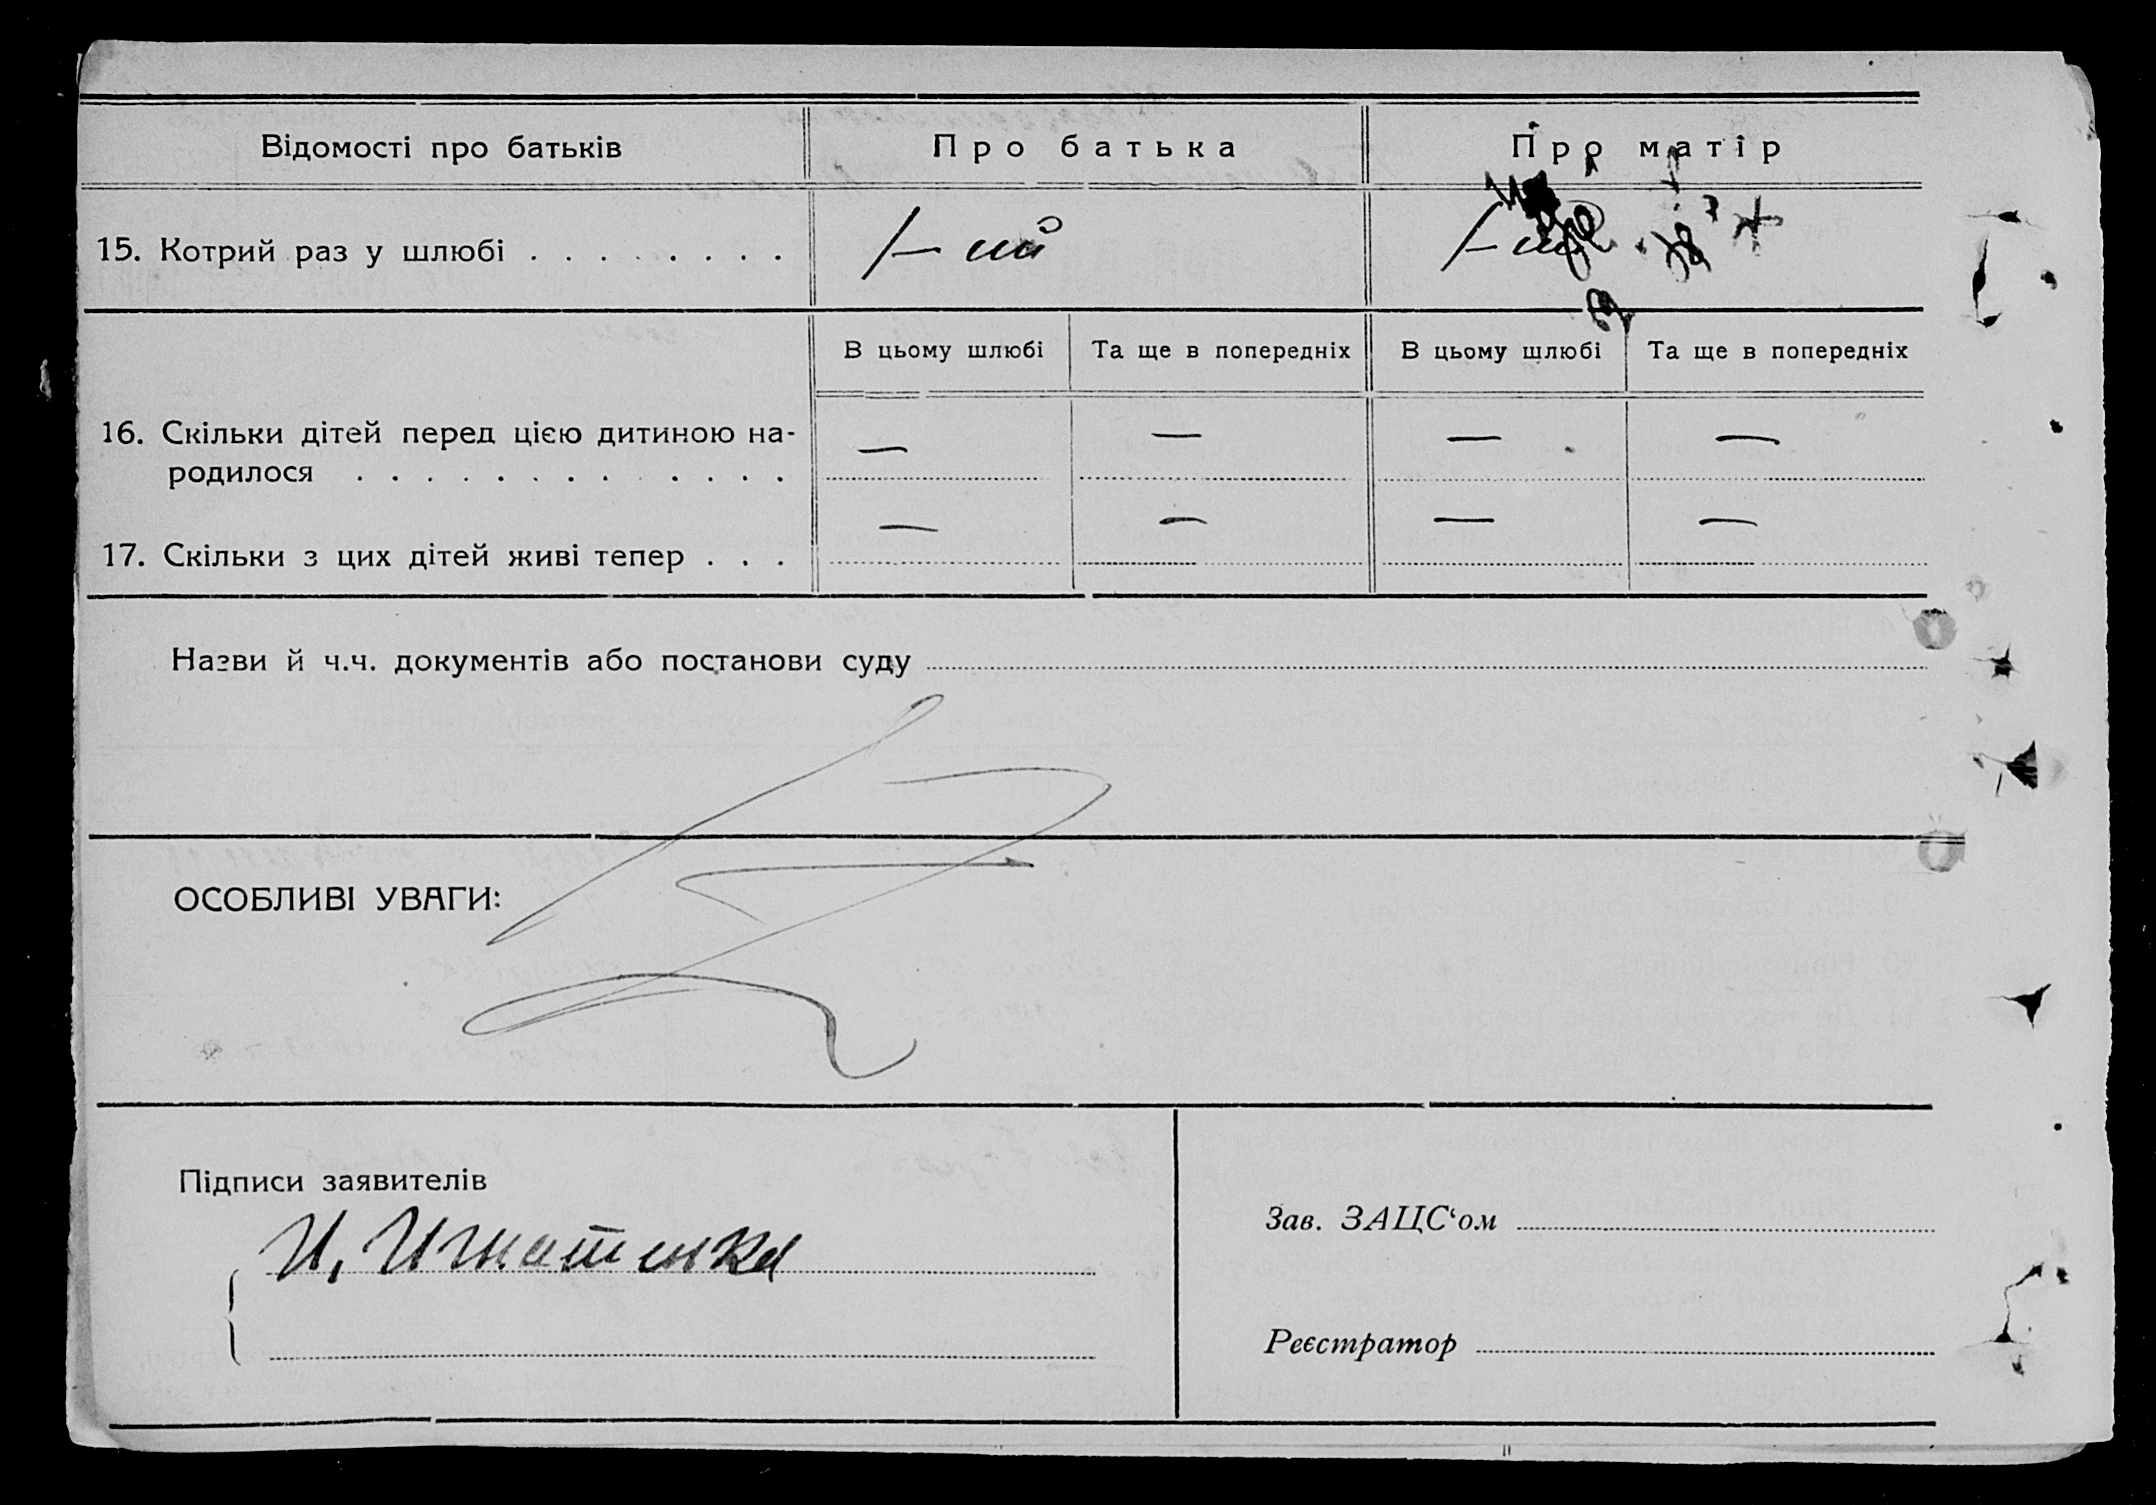 Відомості про батьків
Про батька
Про матір
15. Котрий раз у шлюбі . . . . . . . .
1-ий
В цьому шлюбі
Та ще в попередніх
В цьому шлюбі
Та ще в попередніх
16. Скільки дітей перед цією дитиною на-
— — — —
родилося . . . . . . . . . . . . .
— — — —
17. Скільки з цих дітей живі тепер . . .
Назви й ч.ч. документів або постанови суду
ОСОБЛИВІ УВАГИ:
Підписи заявителів
Зав. ЗАЦС‘ом
Реєстратор